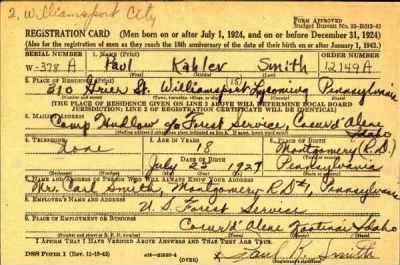 2, Williamsport City
FORM APPROVED
Budget Bureau No. 33-R015-42
REGISTRATION CARD (Men born on or after July 1, 1924, and on or before December 31, 1924)
(Also for the registration of men as they reach the 18th anniversary of the date of their birth on or after January 1, 1943.)
SERIAL NUMBER 1. NAME (Print) ORDER NUMBER
W-378 A Paul Kahler Smith 12149A
(First) (Middle) (Last)
2. PLACE OF RESIDENCE (Print)
310 Grier St. Williamsport Lycoming Pennsylvania
(Number and street) (Town) (County) (State)
[THE PLACE OF RESIDENCE GIVEN ON LINE 2 ABOVE WILL DETERMINE LOCAL BOARD
JURISDICTION; LINE 2 OF REGISTRATION CERTIFICATE WILL BE IDENTICAL]
3. MAILING ADDRESS
Camp Forest Service, Coeur d'Alene Idaho
4. TELEPHONE 5. AGE IN YEARS 6. PLACE OF BIRTH
None 18 Montgomery (R.D.)
DATE OF BIRTH
July 22 Pennsylvania
7. NAME AND ADDRESS OF PERSON WHO WILL ALWAYS KNOW YOUR ADDRESS
Mr. Carl Smith, Montgomery, R.D. #1, Pennsylvania
8. EMPLOYER'S NAME AND ADDRESS
U. S. Forest Service
9. PLACE OF EMPLOYMENT OR BUSINESS
Coeur d'Alene Kootenai Idaho
(Number and street or R. F. D. number) (Town) (County) (State)
I AFFIRM THAT I HAVE VERIFIED ABOVE ANSWERS AND THAT THEY ARE TRUE.
DSS Form 1 (Rev. 11-16-42) Paul K. Smith